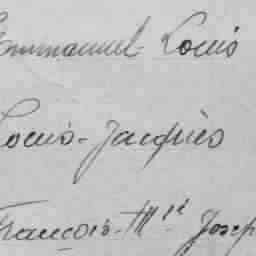 Emmanuel Louis
Louis-Jacques
François-Mie Josep